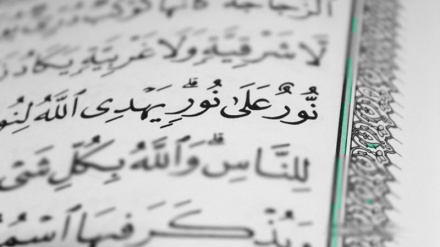 ٱلزُّجَاجَةُ كَأَنَّهَا كَوْكَبٌ دُرِّيٌّ
لَّا شَرْقِيَّةٍ وَلَا غَرْبِيَّةٍ يَكَادُ
نُّورٌ عَلَىٰ نُورٍ ۗ يَهْدِى ٱللَّهُ لِنُورِ
لِلنَّاسِ ۗ وَٱللَّهُ بِكُلِّ شَىْ
وَيُذْكَرَ فِيهَا ٱسْمُ